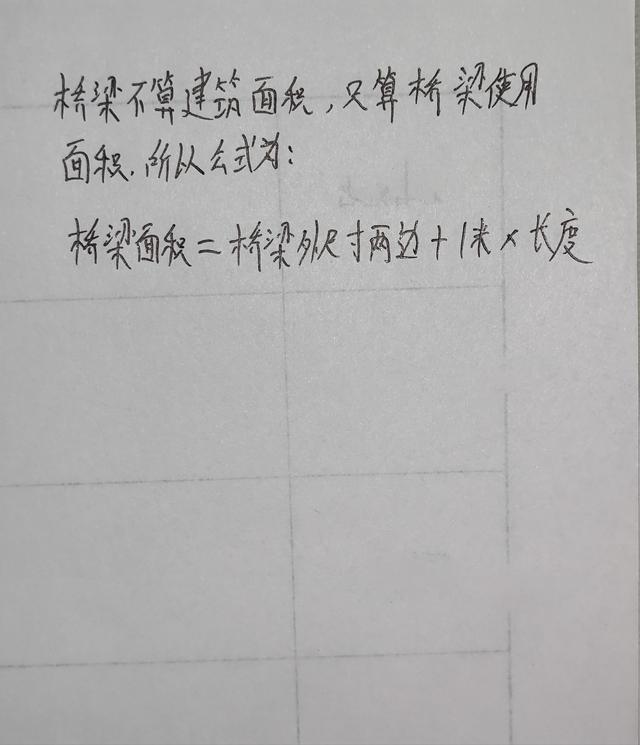 桥梁不算建筑面积，只算桥梁使用
面积.所以公式为：
桥梁面积=桥梁外尺寸两边+1米×长度